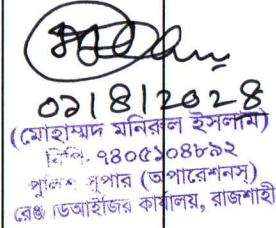 ০১|৪|২০২৪
(মোহাম্মদ মনিরুল ইসলাম)
বিপি- ৭৪০৫১০৪৮৯২
পুলিশ সুপার (অপারেশনস্)
রেঞ্জ ডিআইজির কার্যালয়, রাজশাহী